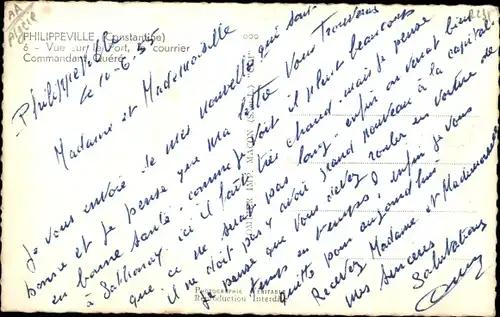 AA
PHILIPPEVILLE (Constantine)
6 - Vue sur le Port, courrier
Commandant Quéré
Philippeville
le 10-6-5
Madame et Mademoiselle
Je vous envoie de mes nouvelles qui sont
bonne et je pense que ma lettre Vous Trouvera
en bonne santé. comme
à Sathonay. ici il fait très chaud. mais je pense
que ce ne sera pas long. enfin
il ne doit pas y avoir grand nouveau à la capital
je pense que vous devez rouler en voiture de
temps en temps, enfin je vous
quitte pour aujourd'hui
Recevez Madame et Mademoiselle
Mes Sincères
Salutations
IMP. MACON
Reproduction Interdite